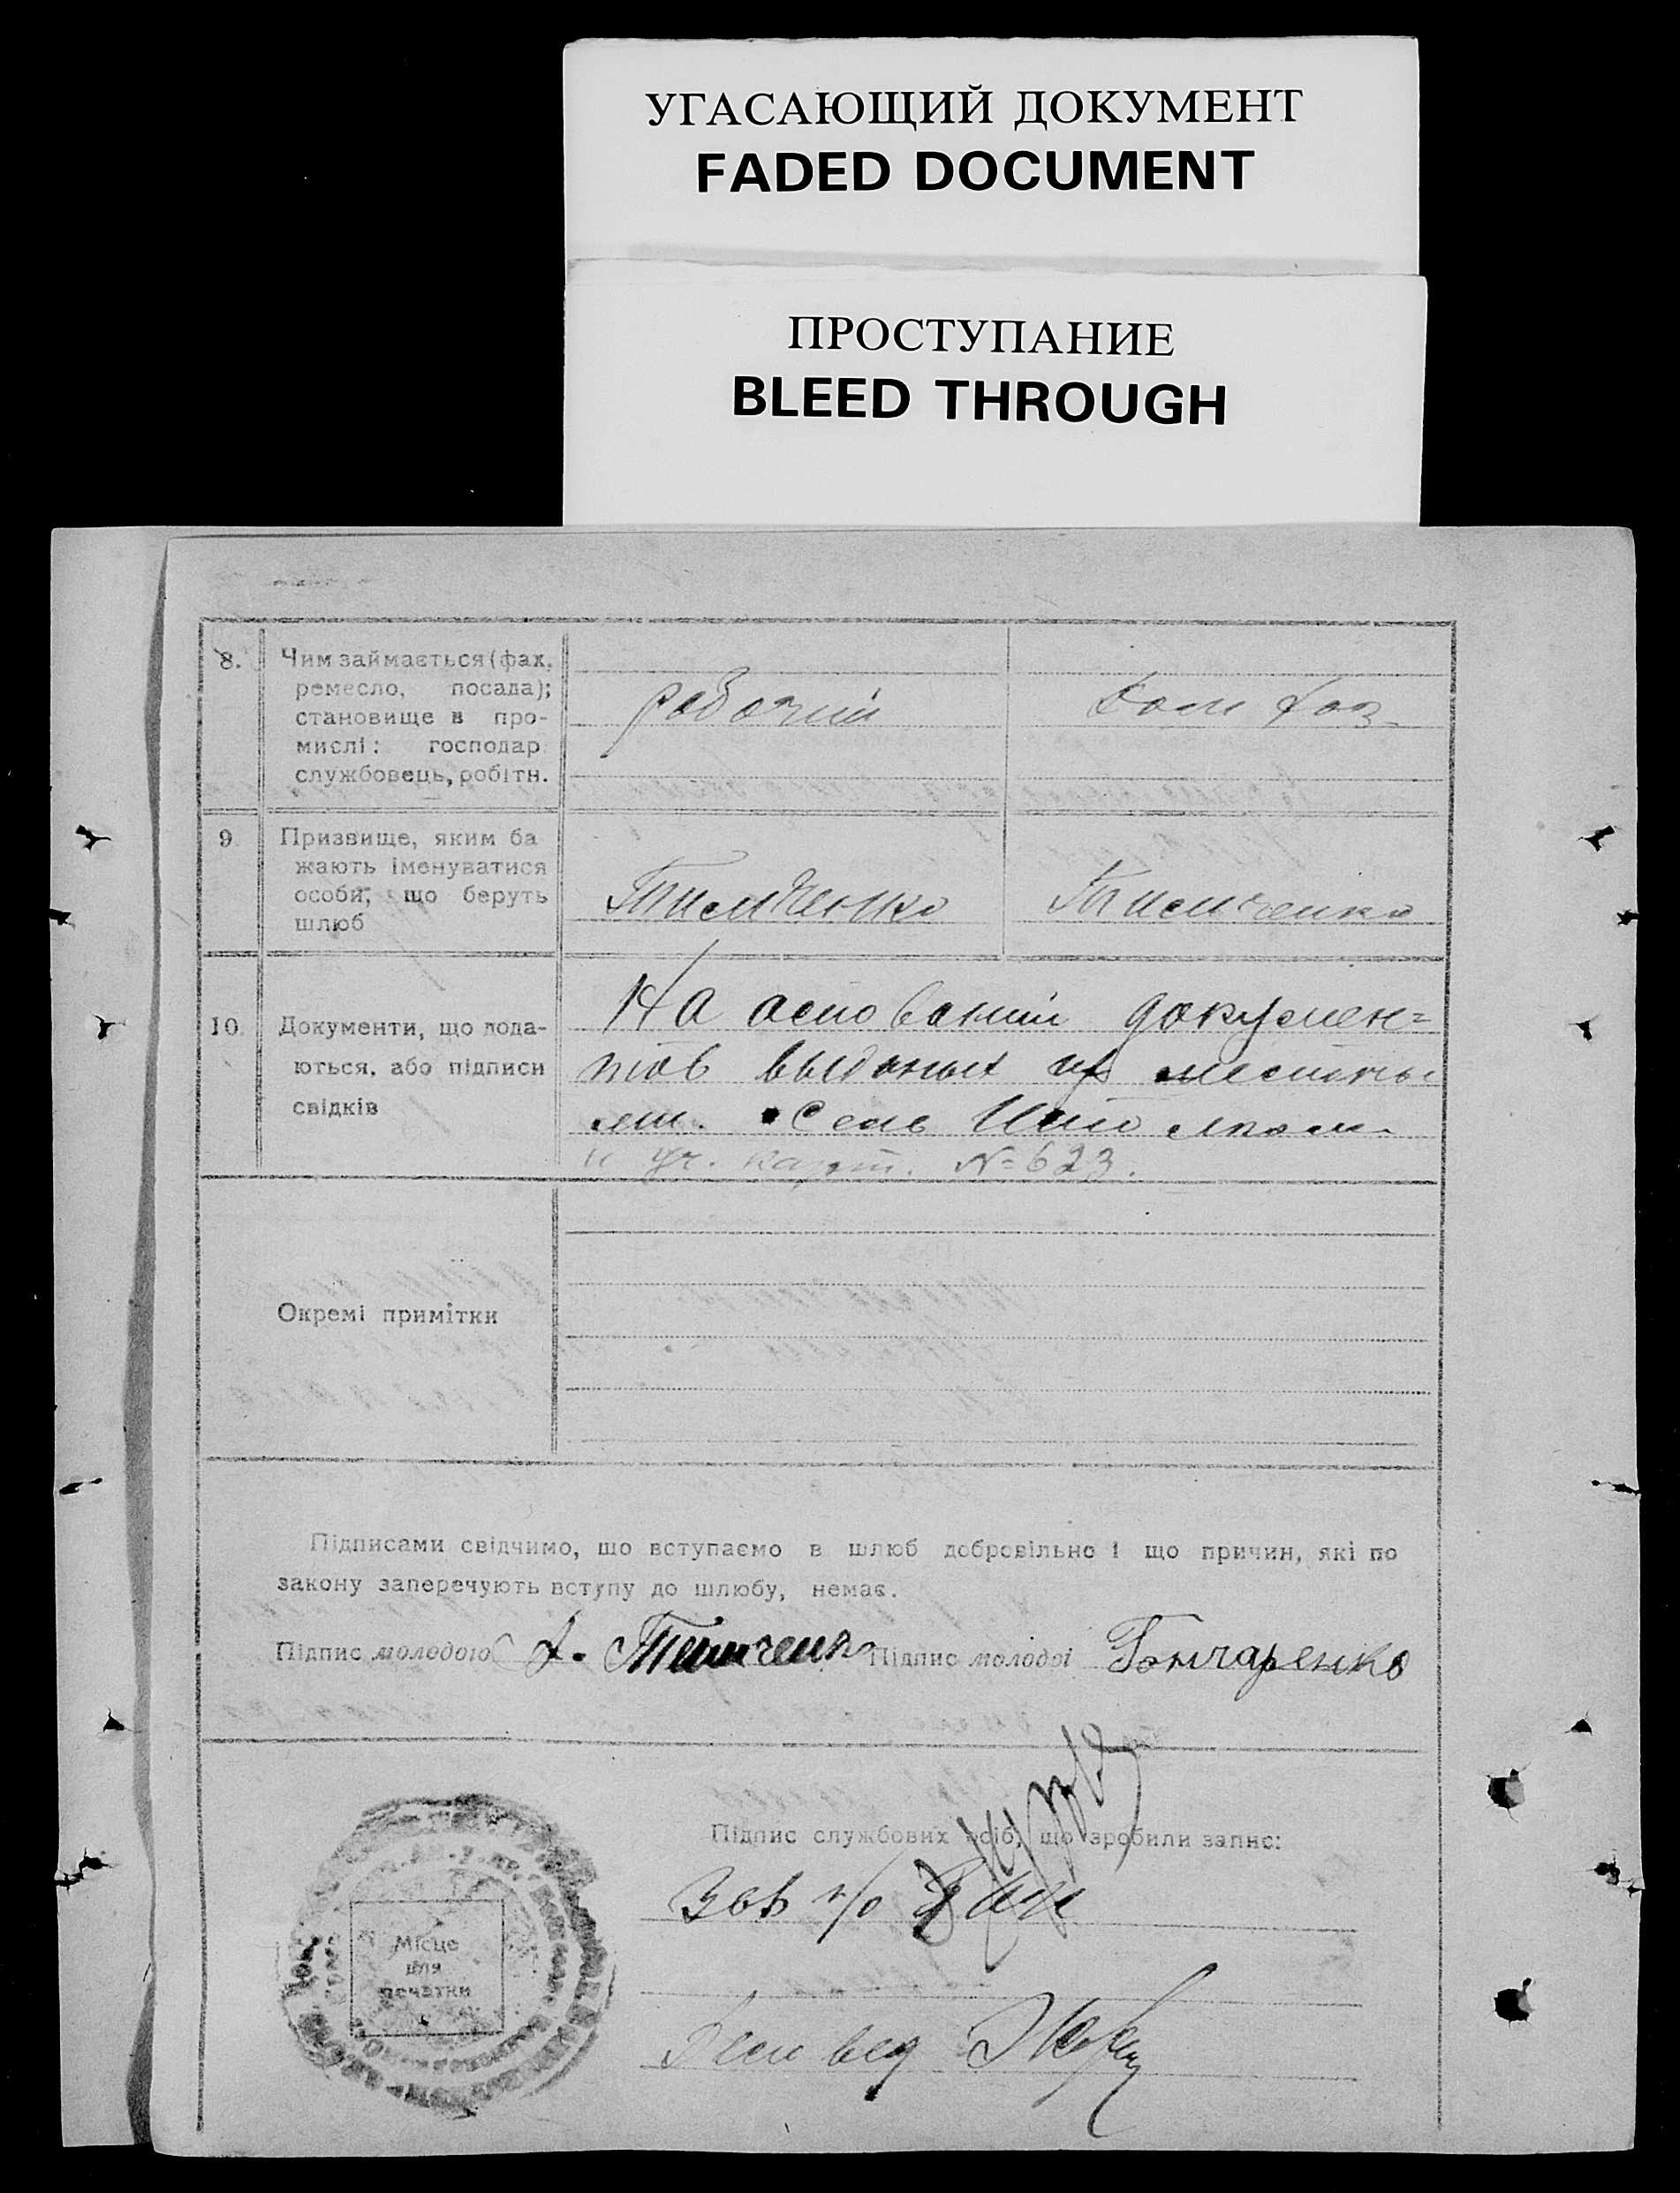 УГАСАЮЩИЙ ДОКУМЕНТ
FADED DOCUMENT
ПРОСТУПАНИЕ
BLEED THROUGH
8. Чим займається (фах,
ремесло, посада);
становище в про-
мислі: господар
службовець, робітн.
рабочий
Дом Хоз.
9. Призвище, яким ба
жають іменуватися
особи, що беруть
шлюб
Тимченко
Тимченко
10. Документи, що пода-
ються, або підписи
свідків
На основании докумен=
тов выданых местны
ми. Сель
и уч. карт. № 623.
Окремі примітки
Підписами свідчимо, що вступаємо в шлюб добровільно і що причин, які по
закону заперечують вступу до шлюбу, немає.
Підпис молодого Тимченко Підпис молодої Гончаренко
Підпис службових осіб, що зробили запис:
Зав
Місце
для
печатки